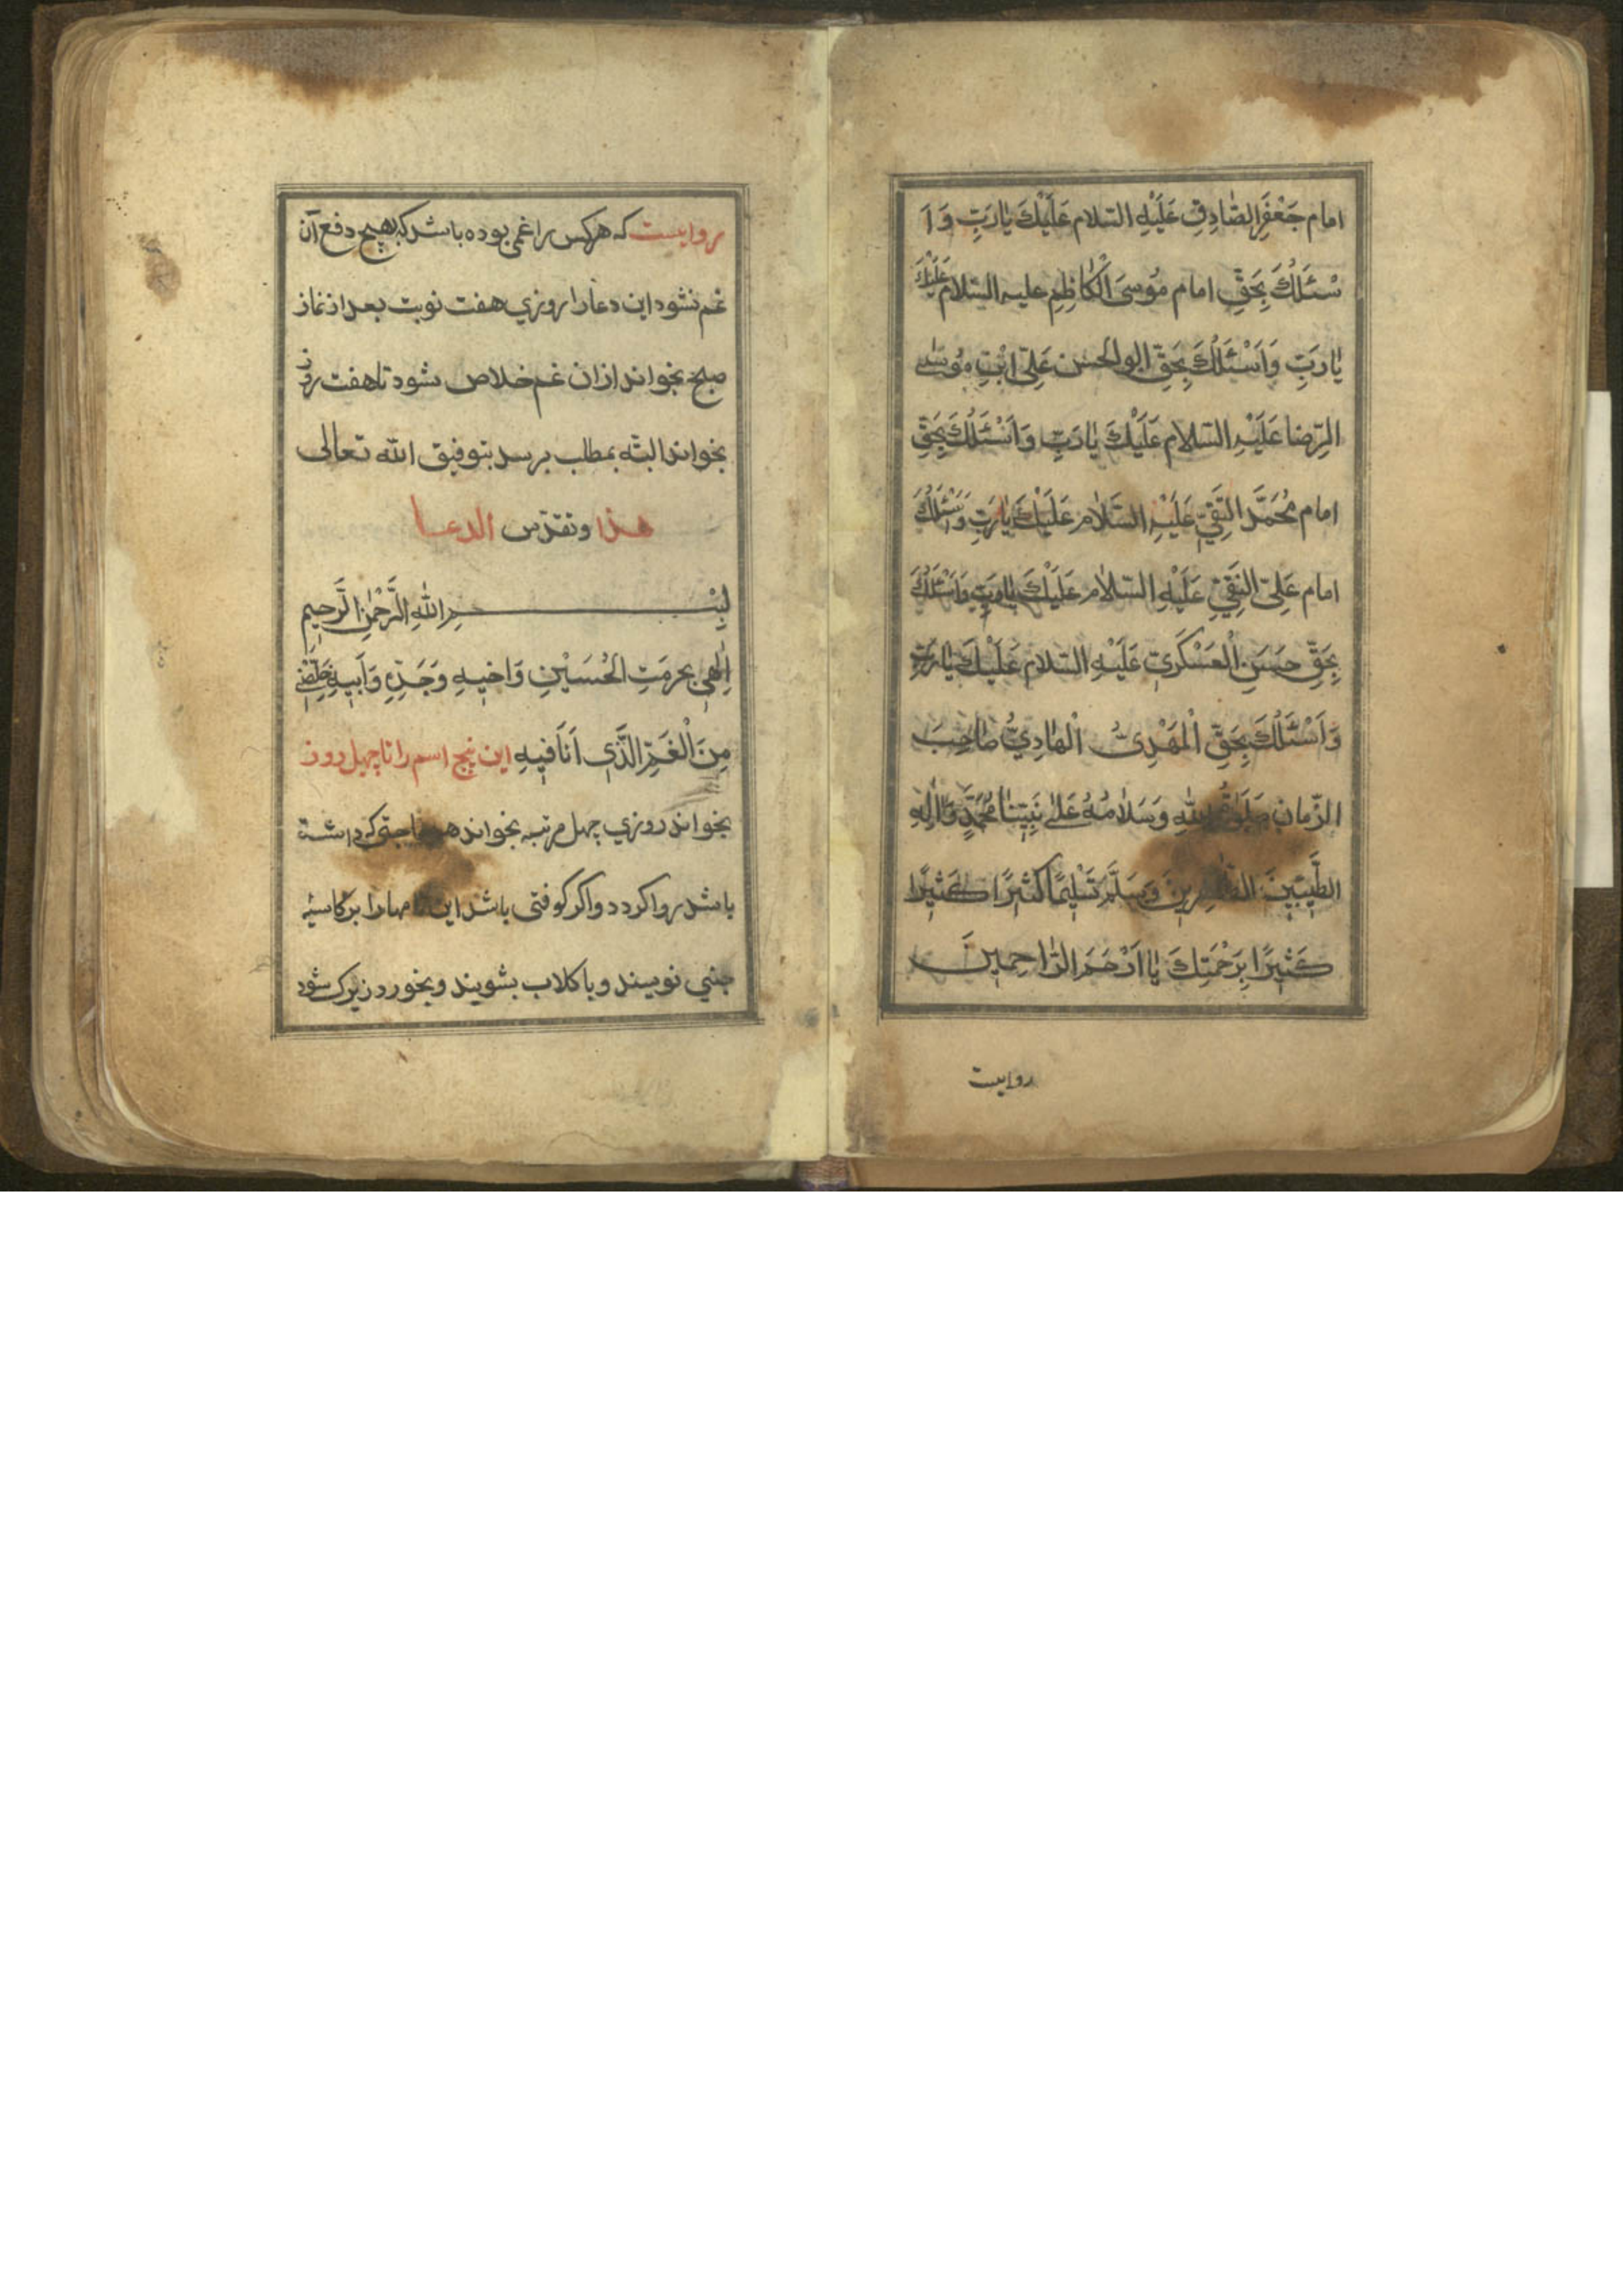 امام جَعْفَرِ الصّادِقِ عَلَيْهِ السّلام عَلَيْكَ يا رَبِّ وَ اَ
سْئَلُكَ بِحَقِّ امام مُوسَى الْكاظِمِ عليه السّلام عَلَيْكَ
يا رَبِّ وَ اَسْئَلُكَ بِحَقِّ ابو الحسن عَلِيّ ابْنِ مُوسىٰ
الرِّضا عَلَيْهِ السّلام عَلَيْكَ يا رَبِّ وَ اَسْئَلُكَ بِحَقِّ
امام مُحَمَّدَ التَّقِيِّ عَلَيْهِ السَّلام عَلَيْكَ يا رَبِّ وَ اَسْئَلُكَ
امام عَلِيّ النَّقِيّ عَلَيْهِ السّلام عَلَيْكَ يا رَبِّ وَ اَسْئَلُكَ
بِحَقِّ حَسَنِ الْعَسْكَرِيّ عَلَيْهِ السّلام عَلَيْكَ يا رَبِّ
وَ اَسْئَلُكَ بِحَقِّ الْمَهْدِيُّ الْهادِيُّ صاحِبَ
الزّمان صَلَواتُ اللهِ وَ سَلامُهُ عَلىٰ نَبِيِّنا مُحَمَّدٍ وَ آلِهِ
الطَّيِّبِينَ الطّاهِرِينَ وَ سَلَّمَ تَسْلِيمًا كَثِيرًا كَثِيرًا
كَثِيرًا بِرَحْمَتِكَ يا اَرْحَمَ الرّاحِمِينَ
روايست
روايست كه هركس را غمى بوده باشد كه بهيچ دفع آن
غم نشود اين دعا را روزي هفت نوبت بعد از نماز
صبح بخواند ازان غم خلاص شود تا هفت روز
بخواند البتّه بمطلب برسد بتوفيق الله تعالى
هذا و تقدّس الدعا
بِسْمِ اللهِ الرَّحْمٰنِ الرَّحِيمِ
اِلٰهِي بحرمَتِ الْحُسَيْنِ وَ اخيهِ وَ جَدِّهِ وَ اَبيهِ خَلِّصْنِي
مِنَ الْغَمِّ الَّذِي اَنَا فيهِ اين پنج اسم را تا چهل روز
بخواند روزي چهل مرتبه بخواند هر حاجتى كه داشته
باشد روا كردد و اكر كوفتى باشد اين نامها را بر كاسه
چيني نويسند و با كلاب بشويند و بخورد زيرك شود